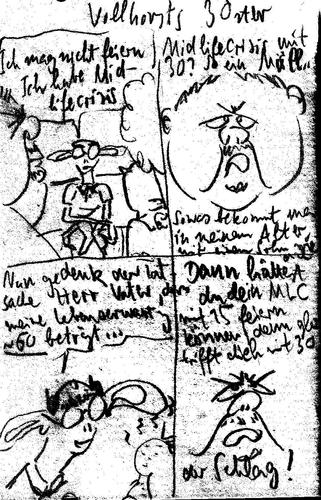 Vollhorsts 30ster
Ich mag nicht feiern!
Ich habe Mid-
lifecrisis
Midlifecrisis mit
30? So ein Müll..
Sowas bekommt man
in meinem Alter,
mit einem
Nun gedenk der Tat-
sache Herr Vater, dass
meine Lebenserwartung
~60 beträgt...
Dann hättest
du dein MLC
mit 15 feiern
können denn
trifft dich mit 30
der Schlag!